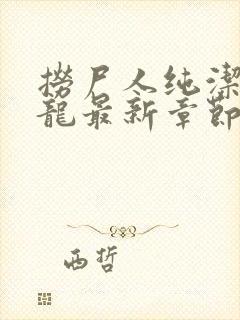 撈尸人纯潔
龍最新章節
西哲